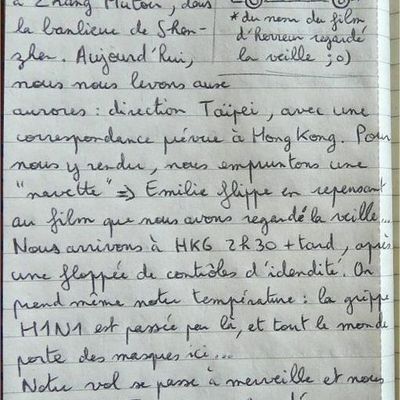 à Zhang Mutou, dans
la banlieue de Shen-
zhen. Aujourd'hui,
* du nom du film
d'horreur regardé
la veille ;o)
nous nous levons aux
aurores : direction Taïpei, avec une
correspondance prévue à Hong Kong. Pour
nous y rendre, nous empruntons une
"navette" => Emilie flippe en repensant
au film que nous avons regardé la veille...
Nous arrivons à HKG 2h30 + tard, après
une floppée de contrôles d'idendité. On
prend même notre température : la grippe
H1N1 est passée par là, et tout le monde
porte des masques ici...
Notre vol se passe à merveille et nous